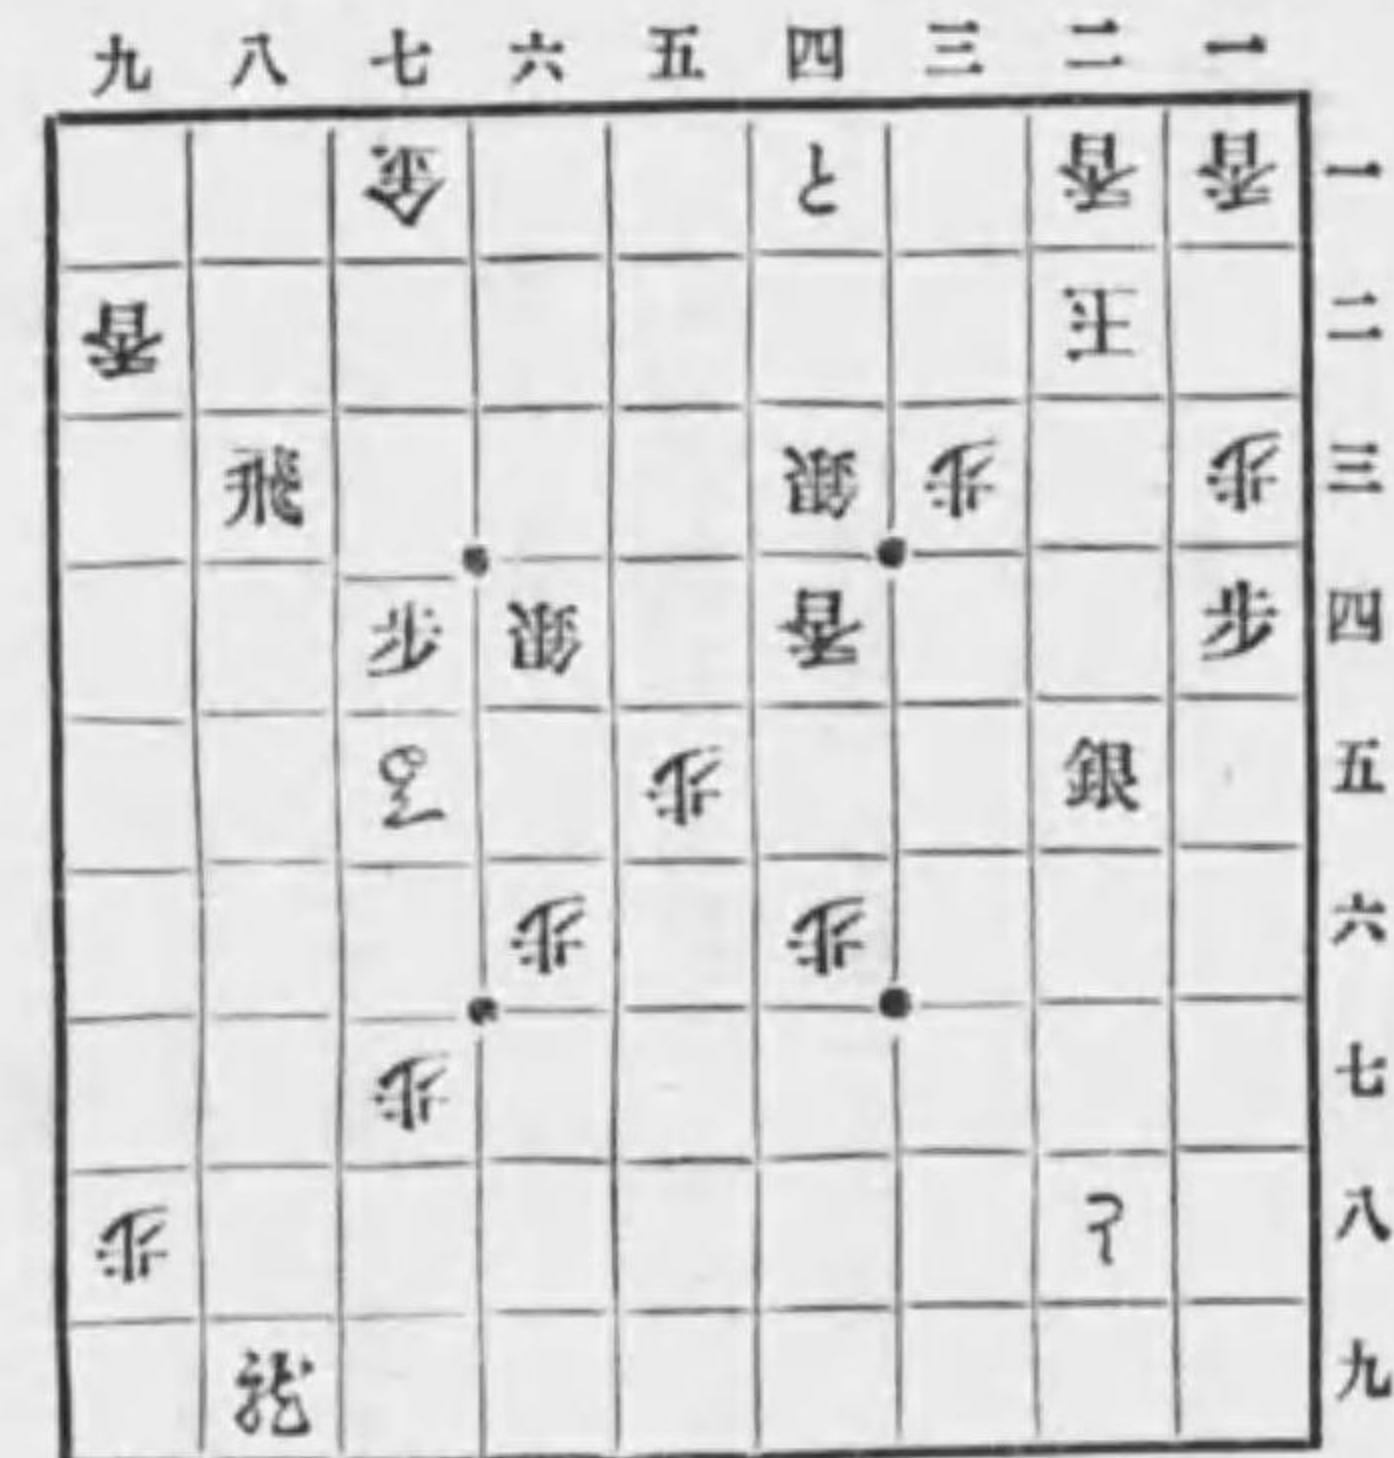 九 八 七 六 五 四 三 二 一
金 と 香 香 一
香 王 二
飛 銀 歩 歩 三
歩 銀 香 歩 四
歩 銀 五
歩 歩 六
歩 七
歩 と 八
龍 九